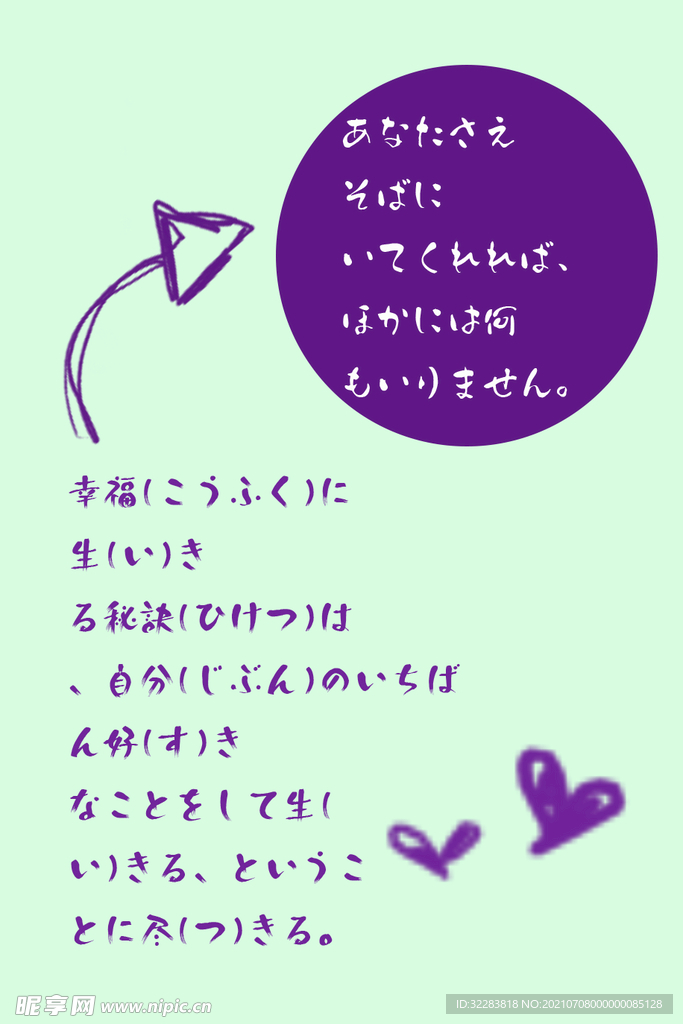 あなたさえ
そばに
いてくれれば、
ほかには何
もいりません。
幸福(こうふく)に
生(い)き
る秘訣(ひけつ)は
、自分(じぶん)のいちば
ん好(す)き
なことをして生(
い)きる、というこ
とに尽(つ)きる。
昵享网 www.nipic.cn
ID:32283818 NO:20210708000000085128